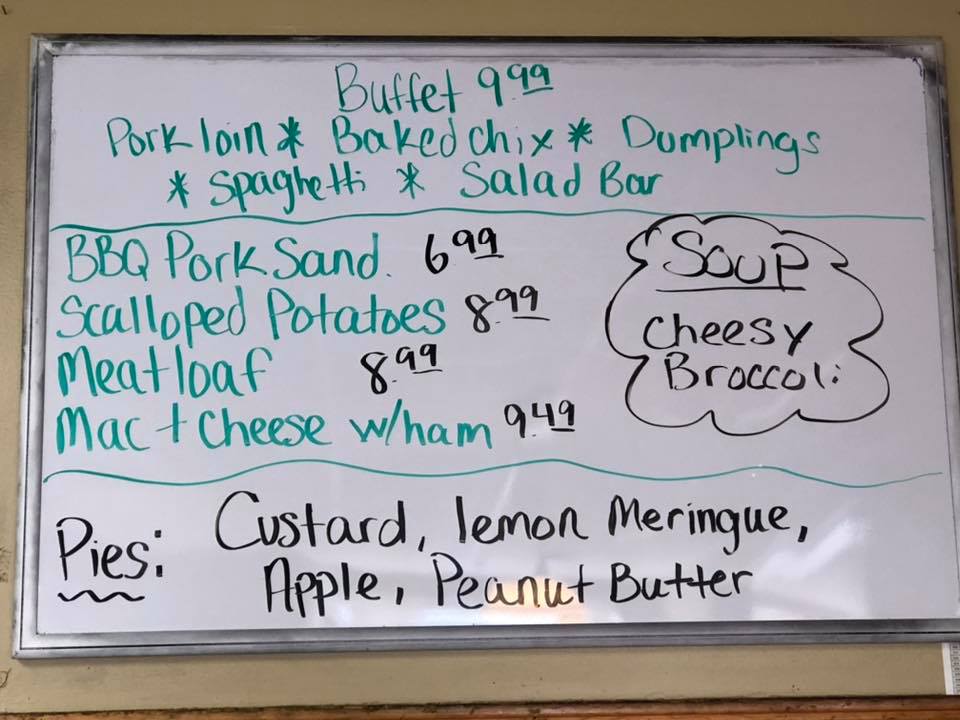 Buffet 9.99
Pork loin * Baked chix * Dumplings
* Spaghetti * Salad Bar
BBQ Pork Sand. 6.99
Scalloped Potatoes 8.99
Meatloaf 8.99
Mac + Cheese w/ham 9.49
Soup
Cheesy
Broccoli
Pies: Custard, lemon Meringue,
Apple, Peanut Butter